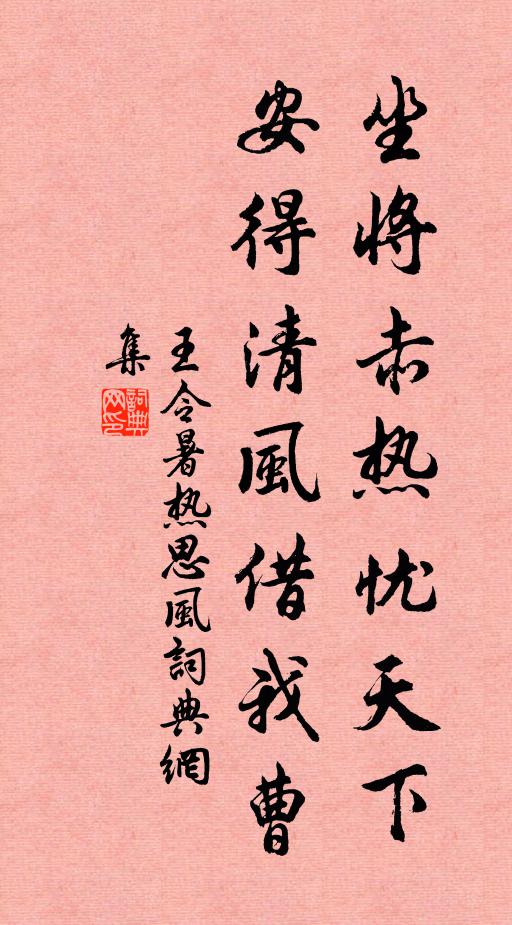 坐将赤热忧天下
安得清風借我曹
王令暑热思風詞典網
集
詞典
网印